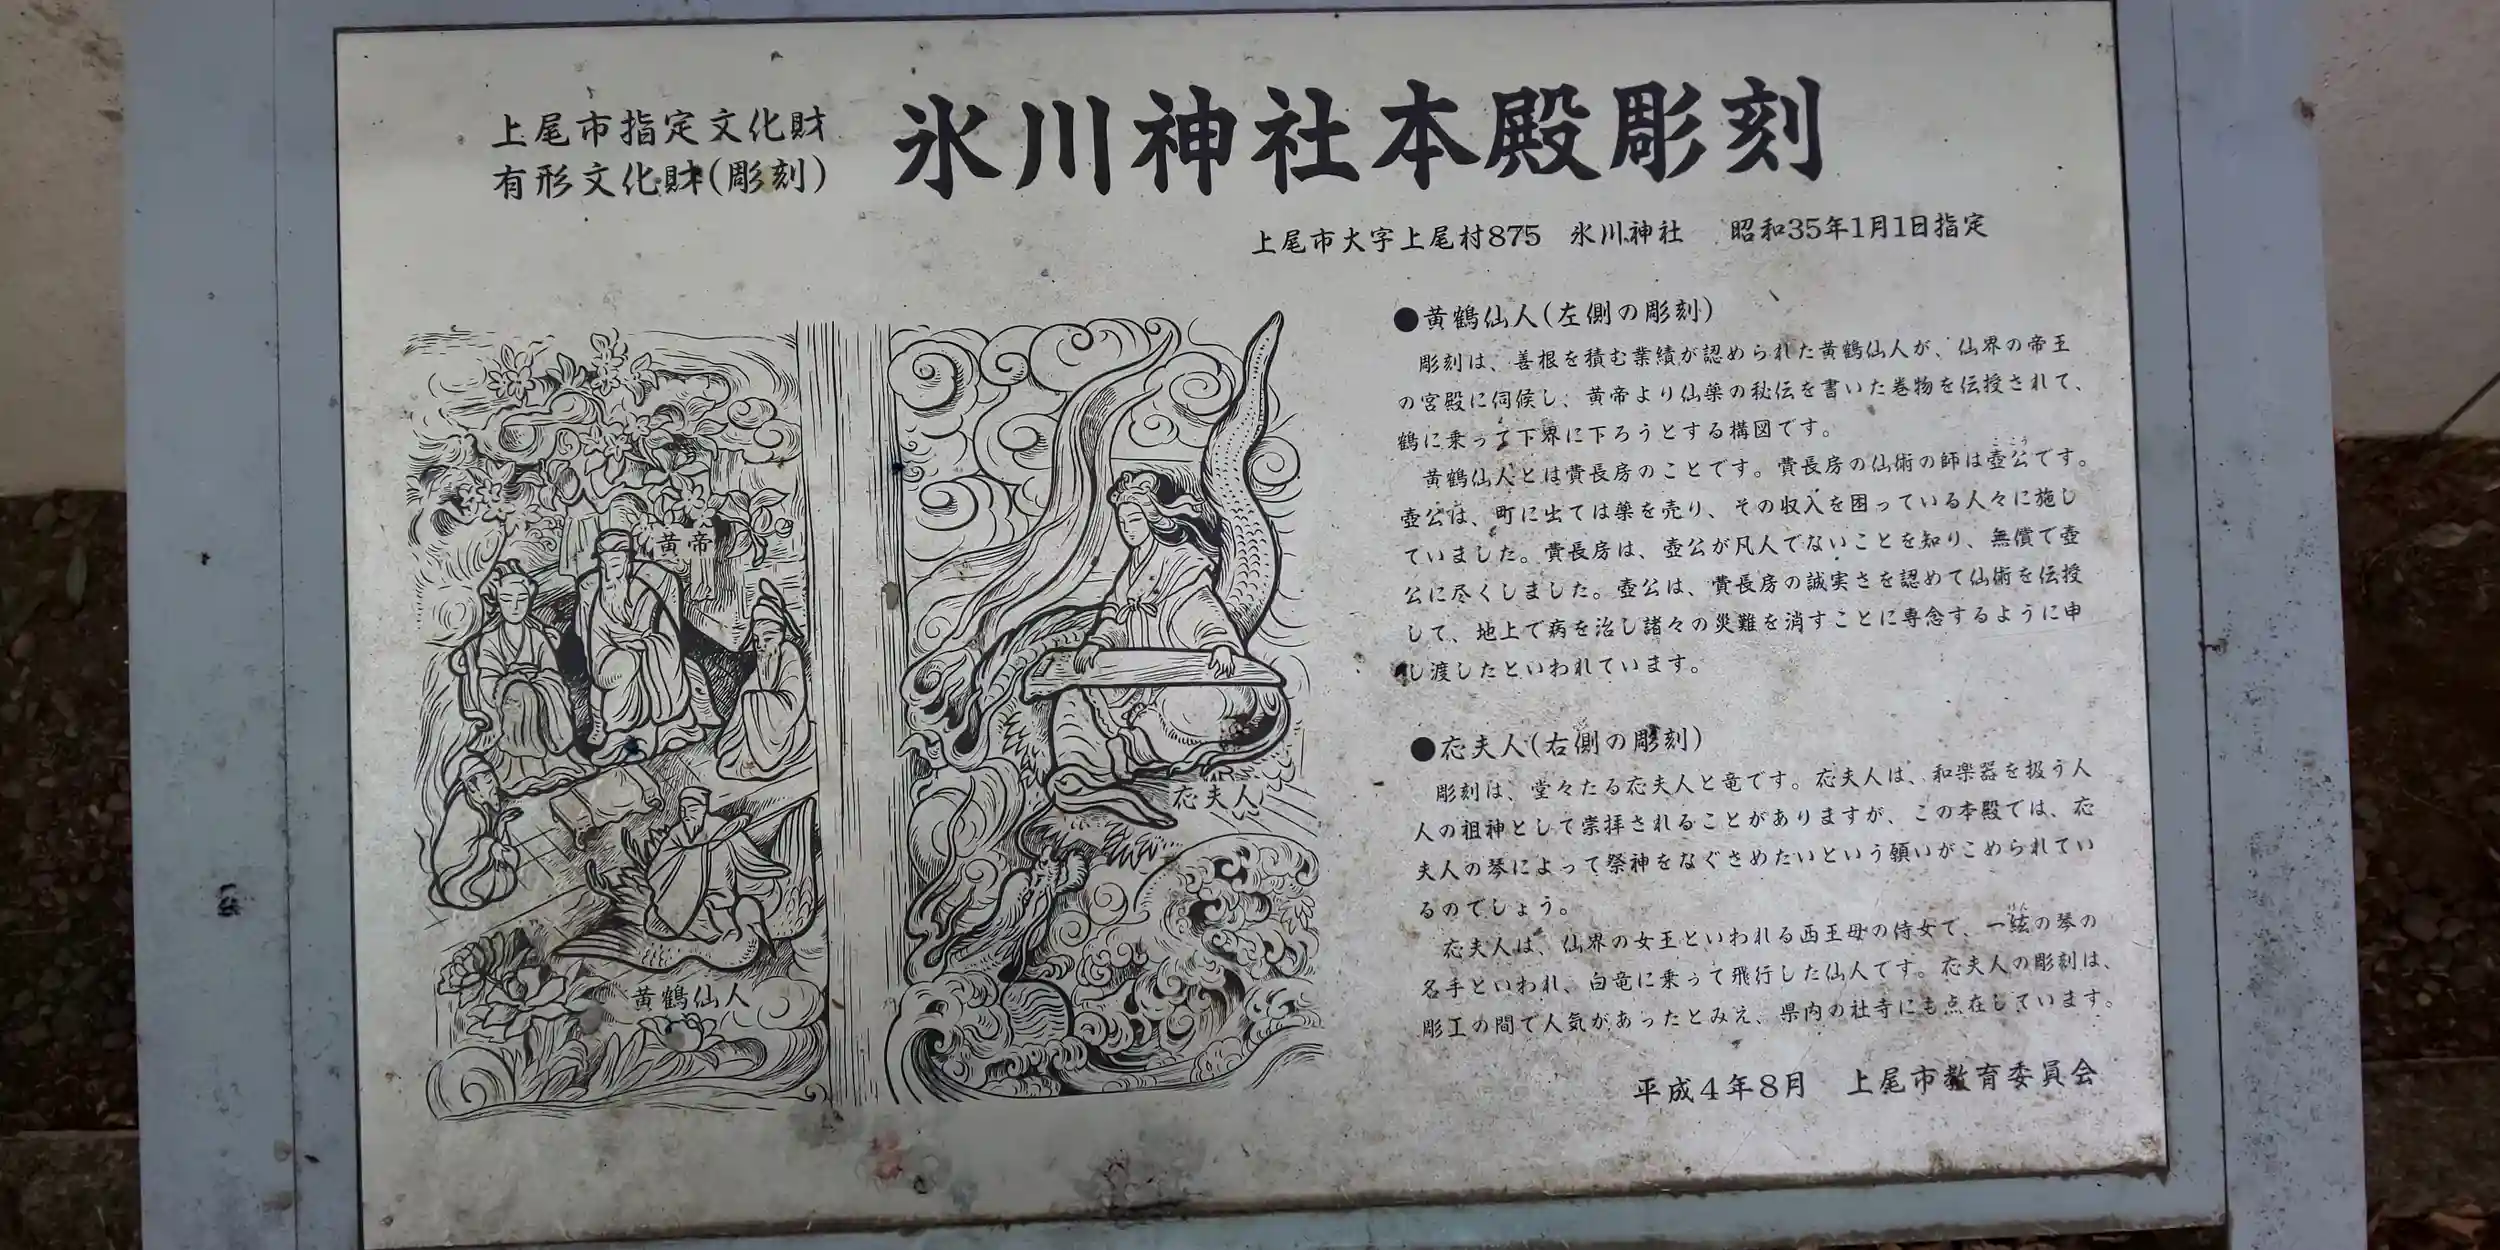 上尾市指定文化財
有形文化財(彫刻)
氷川神社本殿彫刻
上尾市大字上尾村875 氷川神社 昭和35年1月1日指定
黄帝
黄鶴仙人
応夫人
●黄鶴仙人(左側の彫刻)
彫刻は、善根を積む業績が認められた黄鶴仙人が、仙界の帝王
の宮殿に伺候し、黄帝より仙薬の秘伝を書いた巻物を伝授されて、
鶴に乗って下界に下ろうとする構図です。
黄鶴仙人とは費長房のことです。費長房の仙術の師は壺公です。
ここう
壺公は、町に出ては薬を売り、その収入を困っている人々に施し
ていました。費長房は、壺公が凡人でないことを知り、無償で壺
公に尽くしました。壺公は、費長房の誠実さを認めて仙術を伝授
して、地上で病を治し諸々の災難を消すことに専念するように申
し渡したといわれています。
●応夫人(右側の彫刻)
彫刻は、堂々たる応夫人と竜です。応夫人は、和楽器を扱う人
人の祖神として崇拝されることがありますが、この本殿では、応
夫人の琴によって祭神をなぐさめたいという願いがこめられてい
るのでしょう。
応夫人は、仙界の女王といわれる西王母の侍女で、一絃の琴の
げん
名手といわれ、白竜に乗って飛行した仙人です。応夫人の彫刻は、
彫工の間で人気があったとみえ、県内の社寺にも点在しています。
平成4年8月 上尾市教育委員会